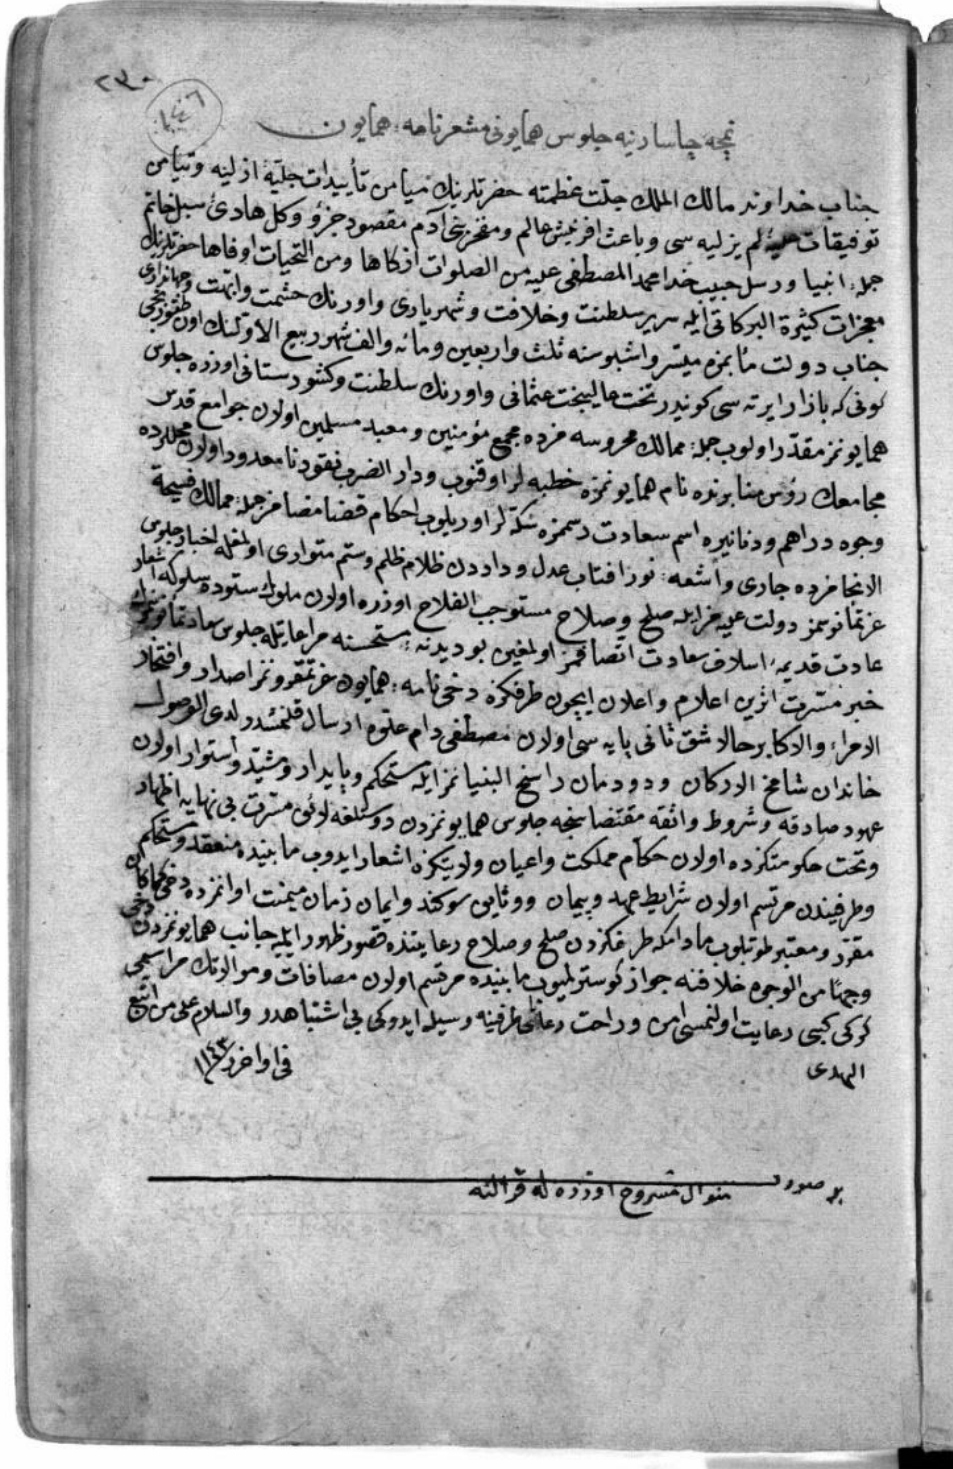 ٢٣٠
١٤٦
نمچه چاسارینه جلوس همایونی مشعر نامهٔ همایون
جناب خداوند مالك الملك جلّت عظمته حضرتلرینك میامن تأییدات جلیّهٔ ازلیه ومیامن
توفیقات علیهٔ لم یزلیه سی وباعث افرینش عالم ومفخر بنی آدم مقصود جزؤ وكل هادئ سبل خاتم
جملهٔ انبیا ورسل حبیب خدا محمد المصطفی علیه من الصلوات ازكاها ومن التحیات اوفاها حضرتلرینك
معجزات كثیرة البركاتی ایله سریر سلطنت وخلافت وشهریاری واورنك حشمت وابهت وجهانداری
جناب دولت مأبمزه میسّر واشبو سنه ثلث واربعین ومائه والف شهر ربیع الاولنك اون طقوزنجی
كونی كه بازار ایرته سی كونیدر تخت عالیبخت عثمانی واورنك سلطنت وكشورستانی اوزره جلوس
همایونمز مقدّر اولوب جمله ممالك محروسه مزده مجمع مؤمنین ومعبد مسلمین اولان جوامع قدس
مجامعك رؤس منابرنده نام همایونمزه خطبه لر اوقنوب ودار الضرب نقود نامعدود اولان محللرده
وجوه دراهم ودنانیره اسم سعادت رسممزه سكّه لر اوریلوب احكام قضا مضامز جمله ممالك فسیحة
الانحامزده جاری واشعهٔ نور افتاب عدل وداددن ظلام ظلم وستم متواری اولمغله اخبار جلوس
عزتمأنوسمز دولت علیه مز ایله صلح وصلاح مستوجب الفلاح اوزره اولان ملوك ستوده سلوكه اشعار
عادت قدیمهٔ اسلاف سعادت اتّصافمز اولمغین بو دیدنهٔ مستحسنه مراعایتله جلوس سعادتمأنوسمز
خبر مسّرت اثرین اعلام واعلان ایچون طرفكزه دخی نامهٔ همایون عزتمقرونمز اصدار وافتخار
الامراء والاكابر حالا شق ثانی پایه سی اولان مصطفی دام علوه ارسال قلنمشدر لدی الوصول
خاندان شامخ الاركان ودودمان راسخ البنیانمز ایله مستحكم وپایدار ومشیّد واستوار اولان
عهود صادقه وشروط واثقه مقتضاسنجه جلوس همایونمزدن دوستلغه لائق مسّرت بی نهایه اظهار
وتحت حكومتكزده اولان حكام مملكت واعیان ولایتكزه اشعار ایدوب مابینده منعقد ومستحكم
وطرفیندن مرتسم اولان شرایط عهد وپیمان ووثایق سوكند وایمان زمان میمنت اوانمزده دخی كماكان
مقرّر ومعتبر طوتیلوب مادامكه طرفكزدن صلح وصلاح رعایتنده قصور ظهور ایلمیه جانب همایونمزدن دخی
وجهًا من الوجوه خلافنه جواز كوسترلمیوب مابینده مرتسم اولان مصافات وموالاتك مراسمی
كركی كبی رعایت اولنمسی امن وراحت رعایای طرفینه وسیله ایدوكی بی اشتباهدر والسلام علی من اتبع
الهدی
فی اواخر ر ١١٤٣
بو صورت
منوال مشروح اوزره له قرالنه